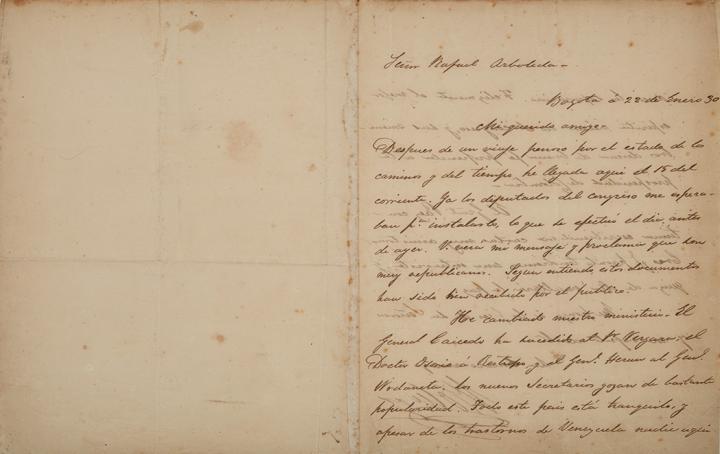 Señor Rafael Arboleda -
Bogotá á 22 de Enero 30
Mi querido amigo -
Despues de un viaje penoso por el estado de los
caminos y del tiempo, he llegado aqui el 15 del
corriente. Ya los deputados del congreso me espera-
ban pª instalarlo, lo que se efectuó el dia antes
de ayer. V. vera mi mensaje y proclama que son
muy republicanos. Segun entiendo estos documentos
han sido bien recibido por el publico.
He cambiado nuestro ministerio. El
General Caicedo ha sucedido al Sr Vergara, el
Doctor Osorio á Restrepo y al Genl. Herran al Genl.
Urdaneta. Los nuevos Secretarios gozan de bastante
popularidad. Todo este pais está tranquilo, y
apesar de los trastornos de Venezuela nadie aqui